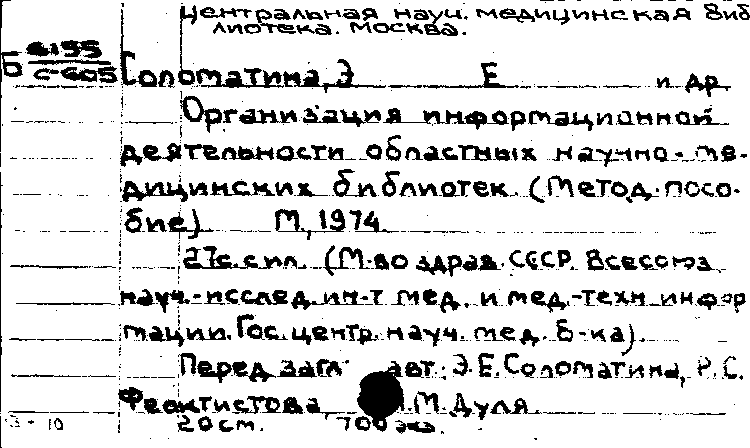 Центральная науч. медицинская биб
лиотека. Москва.
Б 6195
С-605 Соломатина, Э Е и др
Организация информационной
деятельности областных научно-ме-
дицинских библиотек. (Метод. посо-
бие) М., 1974.
27с. с ил. (М-во здрав. СССР. Всесоюз
науч.-исслед. ин-т мед. и мед.-техн инфор
мации. Гос. центр. науч. мед. б-ка).
Перед загл авт.: Э.Е. Соломатина, Р.С.
Феоктистова, М. Дуля.
20см. 700 экз.